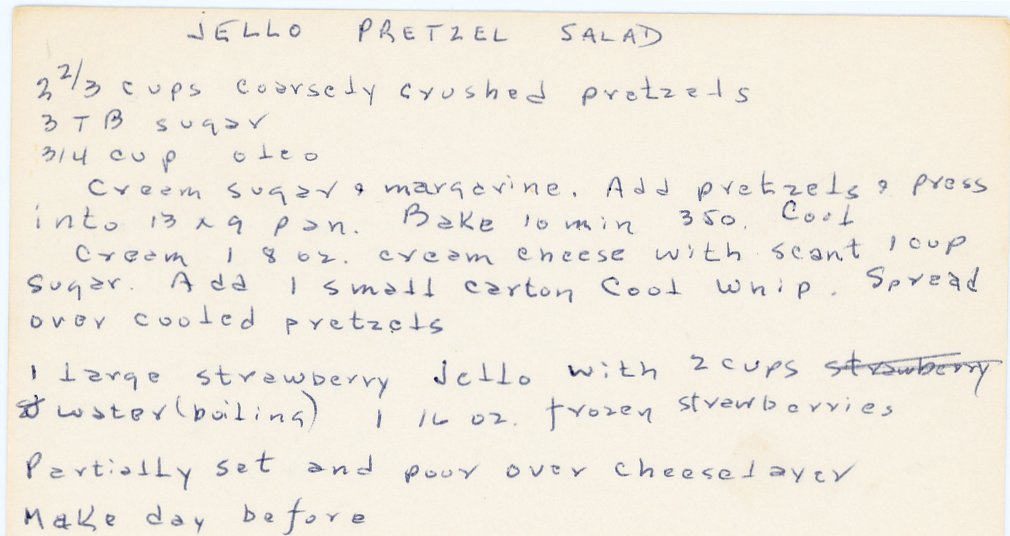 JELLO PRETZEL SALAD
2 2/3 cups coarsely crushed pretzels
3 TB sugar
3/4 cup oleo
Cream sugar & margarine. Add pretzels & press
into 13 x 9 pan. Bake 10 min 350. Cool
Cream 1 8 oz. cream cheese with scant 1 cup
sugar. Add 1 small carton Cool Whip. Spread
over cooled pretzels
1 large strawberry Jello with 2 cups strawberry
water (boiling) 1 16 oz. frozen strawberries
Partially set and pour over cheese layer
Make day before